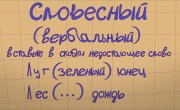 Словесный
(вербальный)
вставьте в скобки недостающее слово
Луг (зеленый) конец
Лес (...) дождь